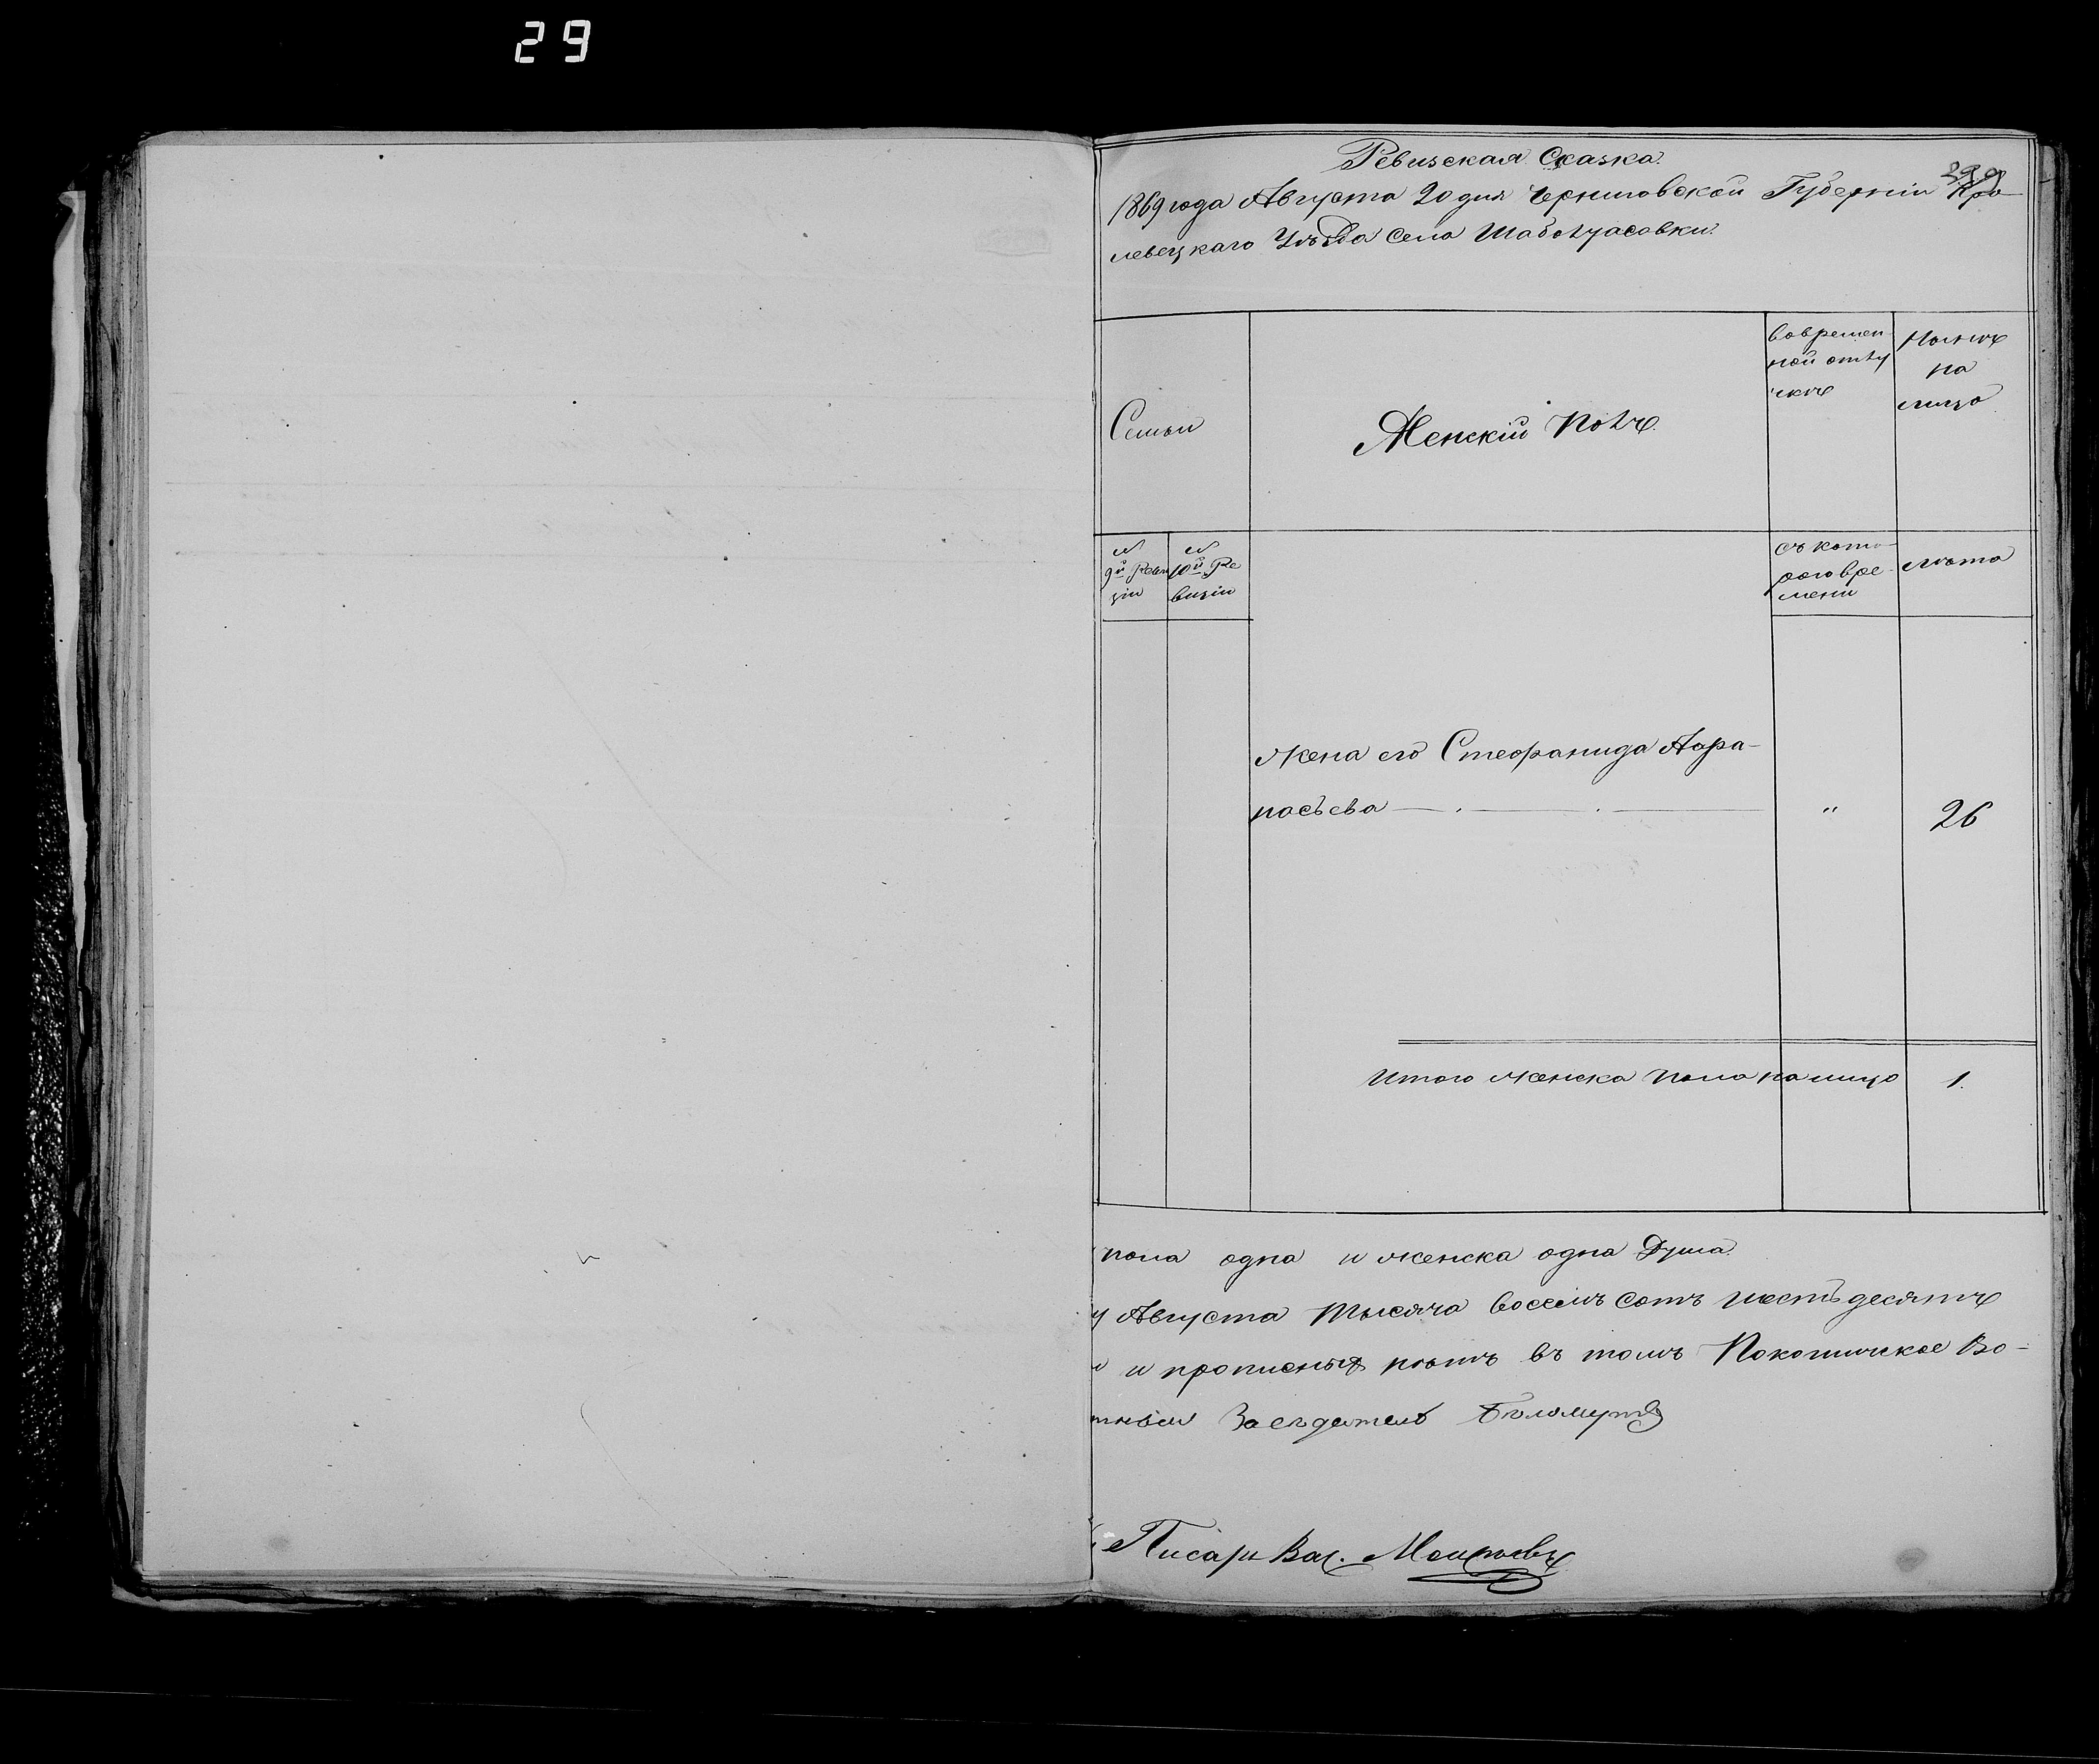 29
Ревизская Сказка.
1869 года Августа 20 дня Черниговской Губерніи Кро-
левецкаго Уѣзда Села Шаболтасовки.
Семьи
Женскій Полъ.
Вовремен-
ной отлу
чкѣ
Нынѣ
на
лицо
№
9й Реви
зіи
№
10й Ре
визіи
съ кото-
раго вре-
мени
Лѣта
Жена его Стефанида Афа-
насьева
"
26
Итого женска пола на лицо
1.
пола одна и женска одна Душа.
у Августа тысяча восемъ сотъ шестьдесятъ
и прописныхъ нѣтъ въ томъ Покошичское Во-
тный Засѣдатель
Писарь Вас.